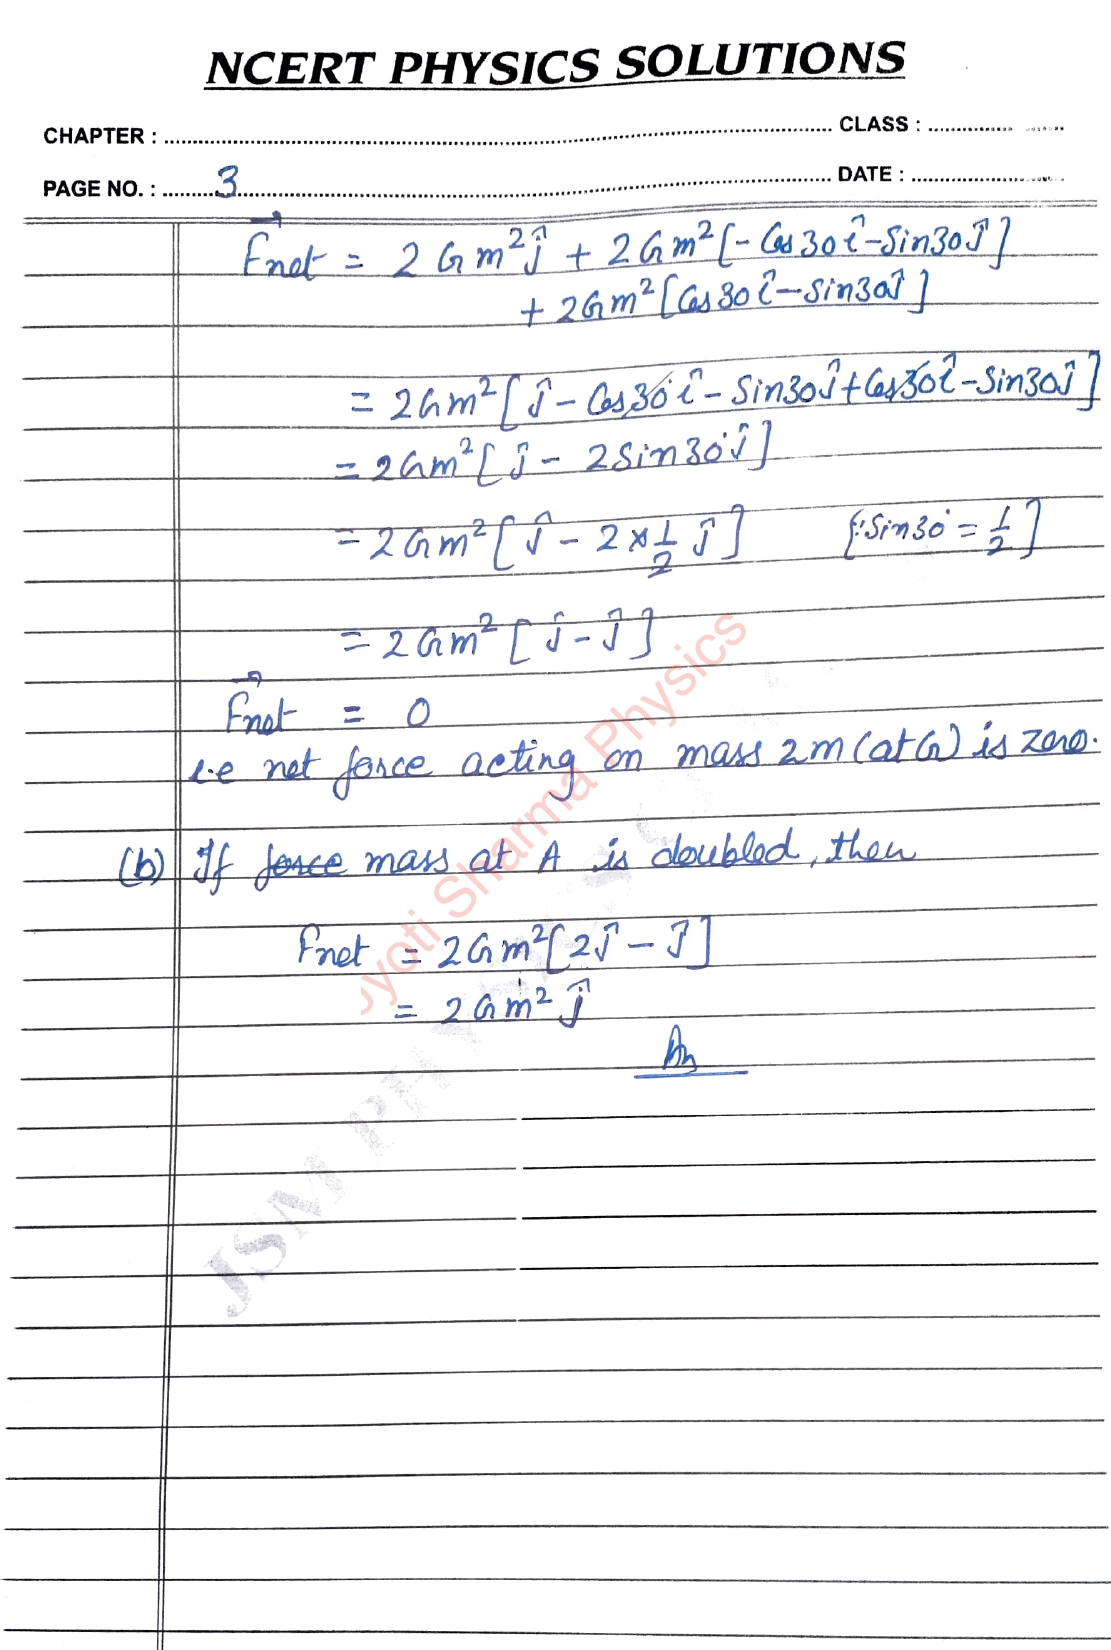 NCERT PHYSICS SOLUTIONS
CHAPTER : ............ CLASS : ............
PAGE NO. : ......... 3 ............ DATE : ............
F⃗net = 2Gm²ĵ + 2Gm²[-Cos30î-Sin30ĵ]
+ 2Gm²[Cos30î-Sin30ĵ]
= 2Gm²[ĵ - Cos30°î - Sin30ĵ + Cos30î - Sin30ĵ]
= 2Gm²[ĵ - 2Sin30°ĵ]
= 2Gm²[ĵ - 2×1/2 ĵ] {∵Sin30° = 1/2]
= 2Gm²[ĵ-ĵ]
F⃗net = 0
i.e net force acting on mass 2m (at G) is zero.
(b) If force mass at A is doubled, then
Fnet = 2Gm²[2ĵ - ĵ]
= 2Gm² ĵ
An
Jyoti Sharma Physics
JSM PHYSICS